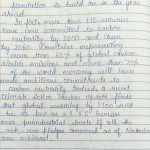 foundation to build on in the year
ahead.
In fact, more than 110 countries
have now committed to carbon
neutrality by 2050 and China
by 2060. Countries representing
more than 65% of global carbon
dioxide emissions and more than 70%
of the world economy will have
made ambitious commitments to
carbon neutrality. Indeed a recent
Climate Action Tracker update finds
that global warming by 2100 could
be as low as 2.1°C
over pre-industrial levels if all the
net zero pledges announced as of November
are achieved.